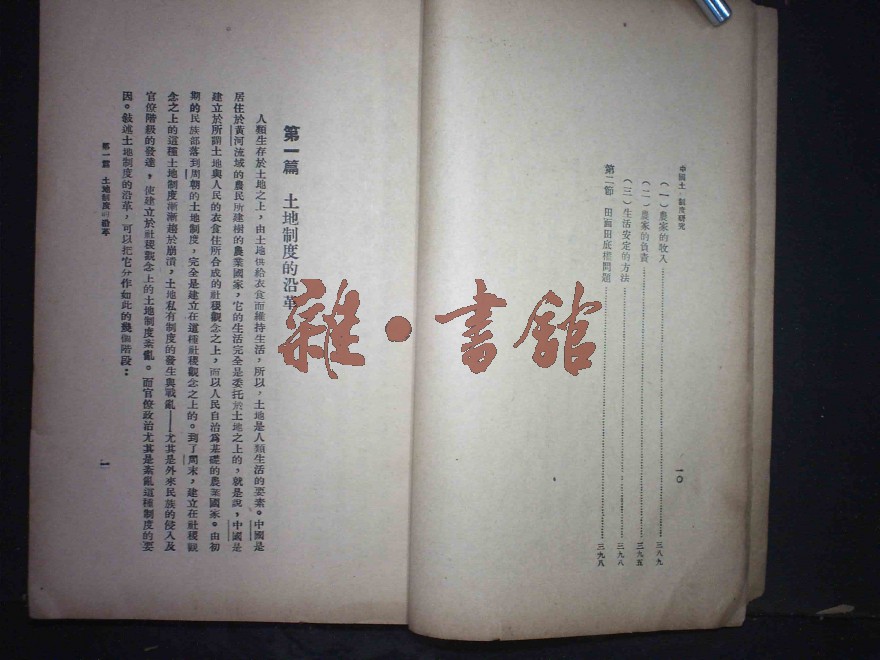 中國土 制度研究
(一)農家的收入……三八九
(二)農家的負責……三九五
(三)生活安定的方法……三九八
第二節 田面田底權問題……三九八
一〇
第一篇 土地制度的沿革
人類生存於土地之上,由土地供給衣食而維持生活,所以,土地是人類生活的要素。中國是
居住於黃河流域的農民所建樹的農業國家,它的生活完全是委托於土地之上的,就是說,中國是
建立於所謂土地與人民的衣食住所合成的社稷觀念之上,而以人民自治為基礎的農業國家。由初
期的民族部落到周朝的土地制度,完全是建立在這種社稷觀念之上的。到了周末,建立在社稷觀
念之上的這種土地制度漸漸趨於崩潰,土地私有制度的發生與戰亂——尤其是外來民族的侵入及
官僚階級的發達,使建立於社稷觀念上的土地制度紊亂。而官僚政治尤其是紊亂這種制度的要
因。敍述土地制度的沿革,可以把它分作如此的幾個階段:
第一篇 土地制度的沿革
一
雜·書館